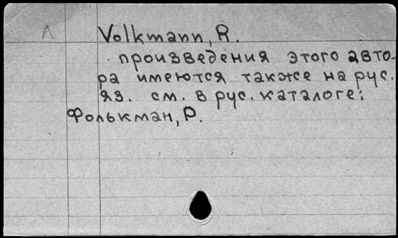 Volkmann, R.
произведения этого авто-
ра имеются также на рус.
яз. см. в рус. каталоге:
Фолькман, Р.